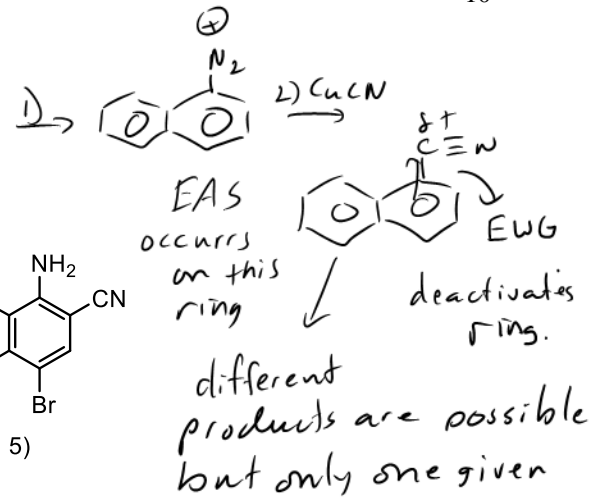 ⊕
N2
1)
2) CuCN
δ+
C≡N
EAS
occurrs
on this
ring
EWG
deactivates
ring.
NH2
CN
Br
5)
different
products are possible
but only one given